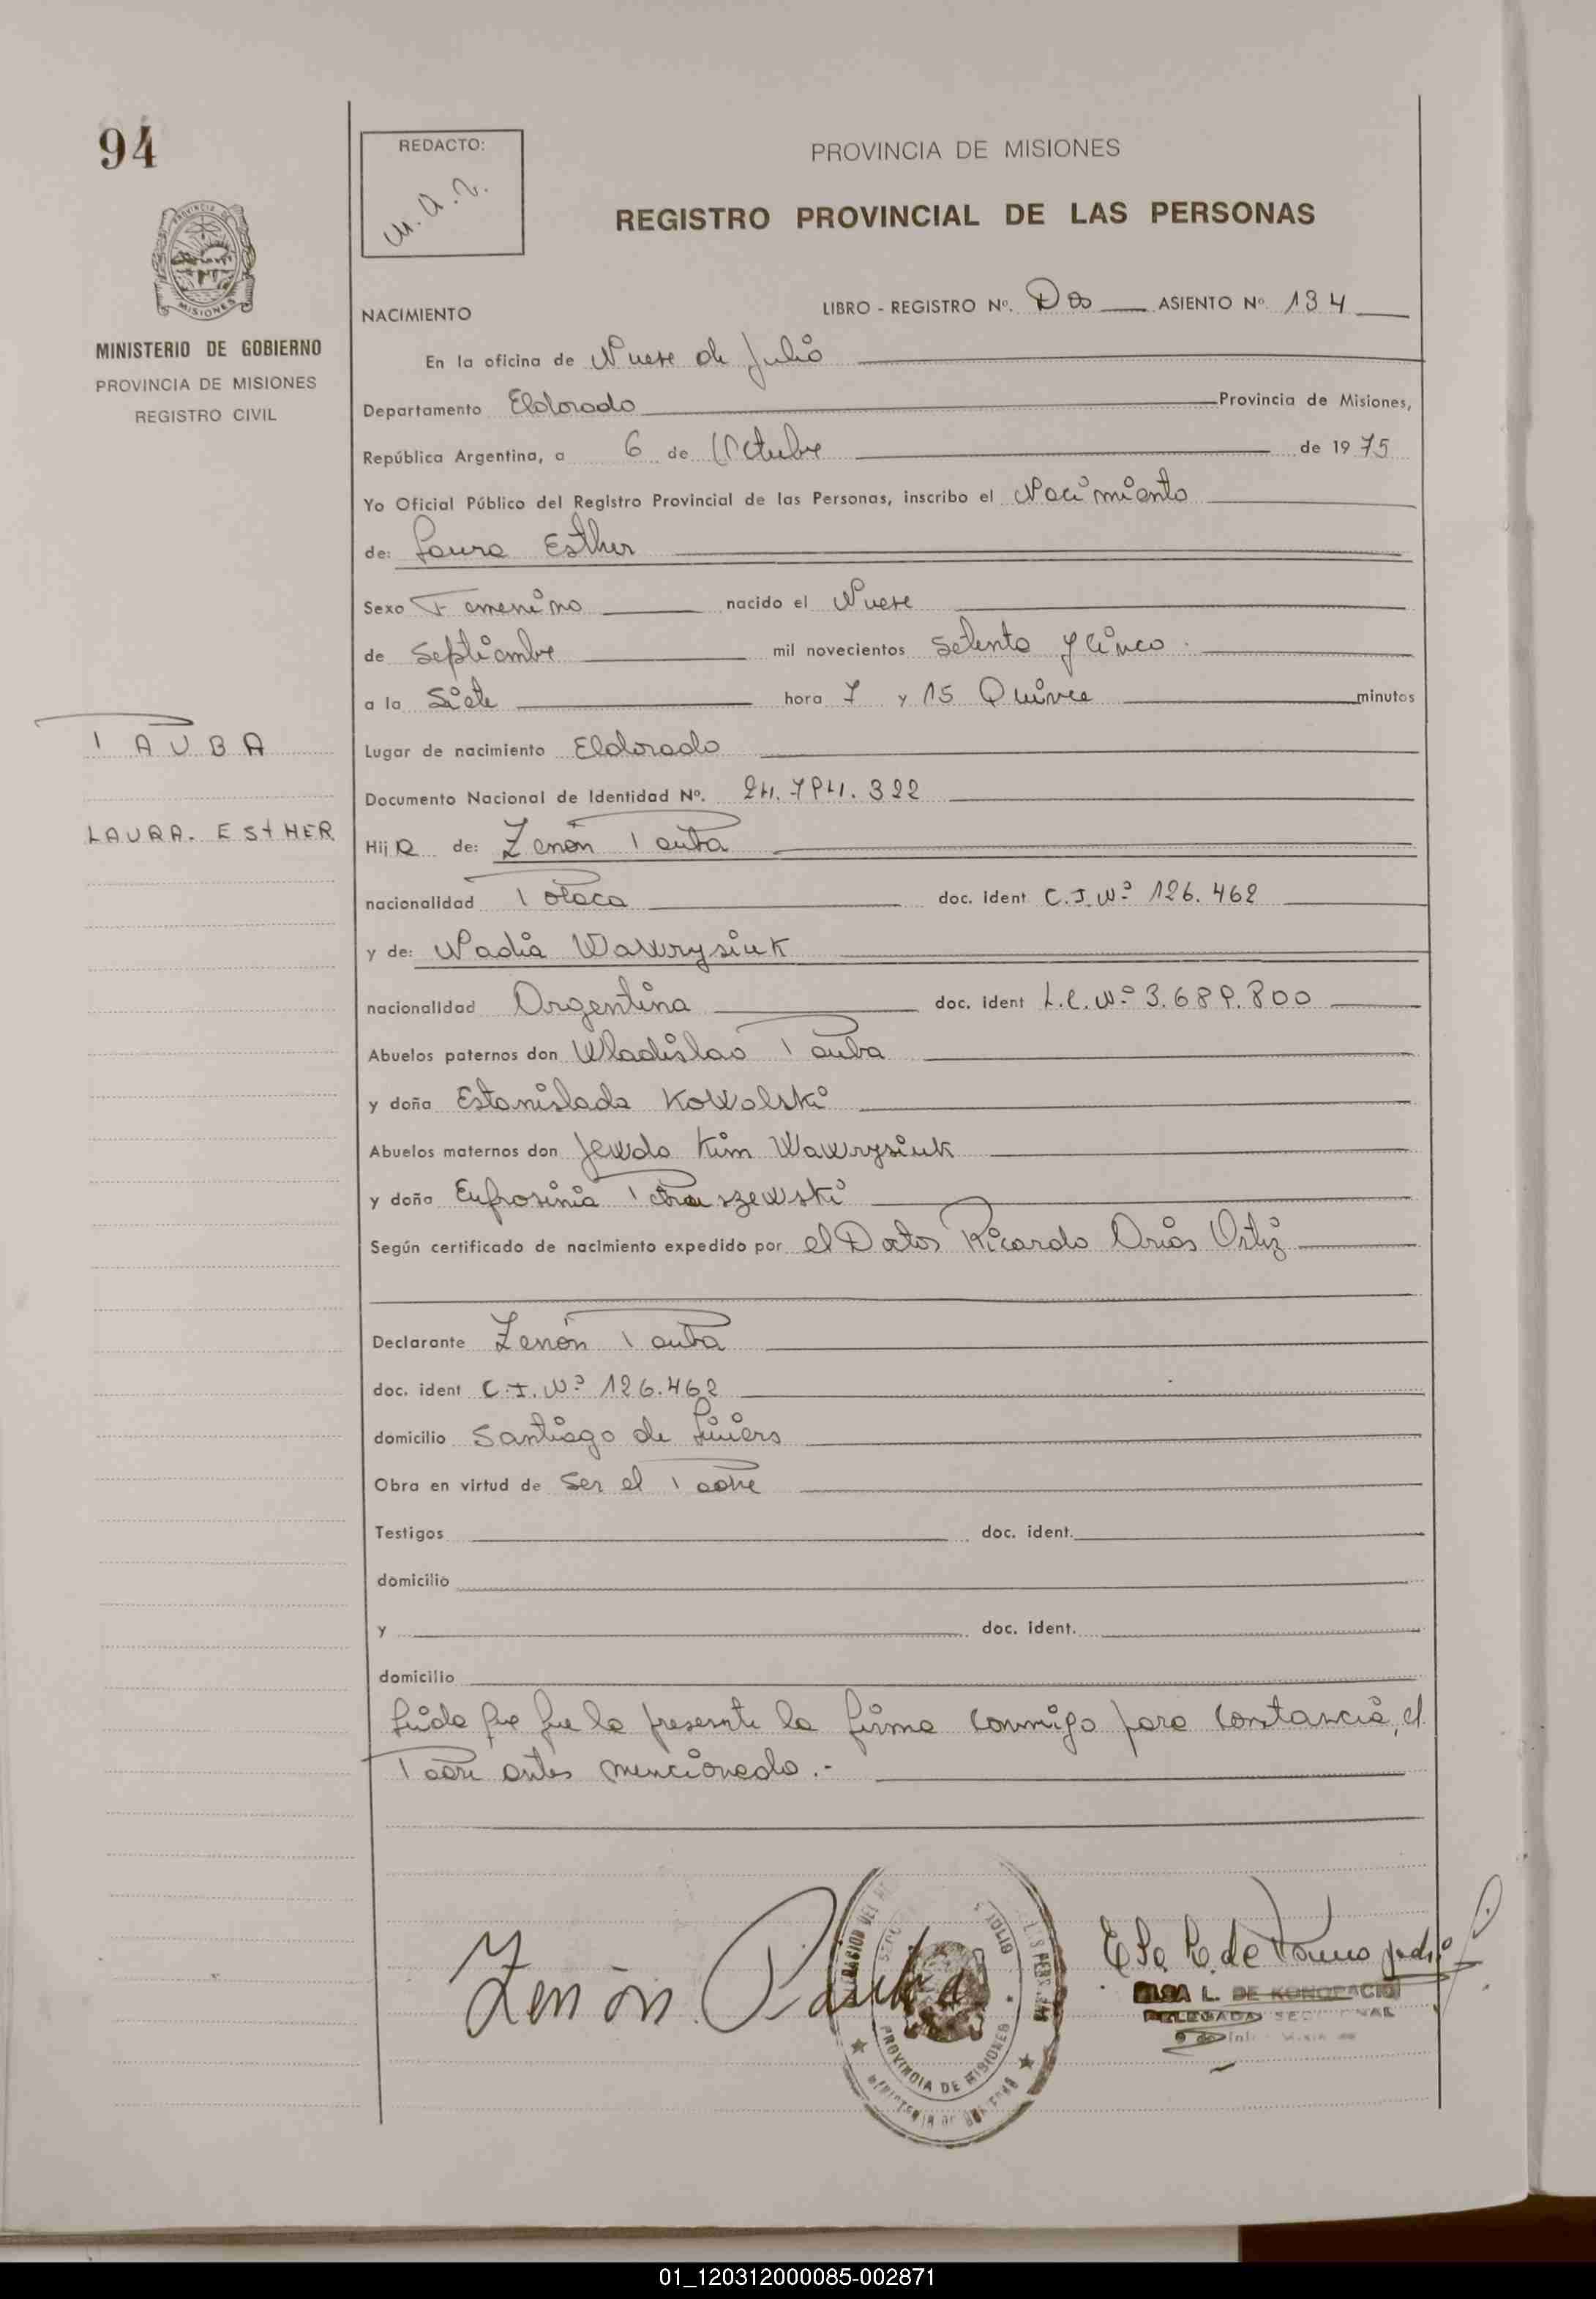 94
REDACTO:
M. A. R.
PROVINCIA DE MISIONES
REGISTRO PROVINCIAL DE LAS PERSONAS
PROVINCIA DE
MISIONES
MINISTERIO DE GOBIERNO
PROVINCIA DE MISIONES
REGISTRO CIVIL
NACIMIENTO LIBRO - REGISTRO Nº. Dos ASIENTO Nº. 134
En la oficina de Nueve de Julio
Departamento Eldorado Provincia de Misiones,
República Argentina, a 6 de Octubre de 1975
Yo Oficial Público del Registro Provincial de las Personas, inscribo el Nacimiento
de: Laura Esther
Sexo Femenino nacido el Nueve
de Septiembre mil novecientos setenta y cinco.
a la Siete hora 7 y 15 Quince minutos
PAUBA
Lugar de nacimiento Eldorado
Documento Nacional de Identidad Nº. 24.794.322
LAURA. ESTHER
Hija de: Zenón Pauba
nacionalidad Polaca doc. ident C.I.Nº 126.462
y de: Nadia Wawrysiuk
nacionalidad Argentina doc. ident L.C.Nº 3.689.800
Abuelos paternos don Wladislao Pauba
y doña Estanislada Kowalski
Abuelos maternos don Jewdo Kim Wawrysiuk
y doña Eufrosinia
Según certificado de nacimiento expedido por el Doctor Ricardo Arias Ortiz
Declarante Zenón Pauba
doc. ident C.I.Nº 126.462
domicilio Santiago de Liniers
Obra en virtud de Ser el Padre
Testigos doc. ident.
domicilio
y doc. ident.
domicilio
Leida que fue la presente la firma conmigo para constancia, el
Padre antes mencionado.-
Zenón Pauba
PROVINCIA DE MISIONES
ELSA L. DE KONOPACKI
DELEGADA SECCIONAL
01_120312000085-002871